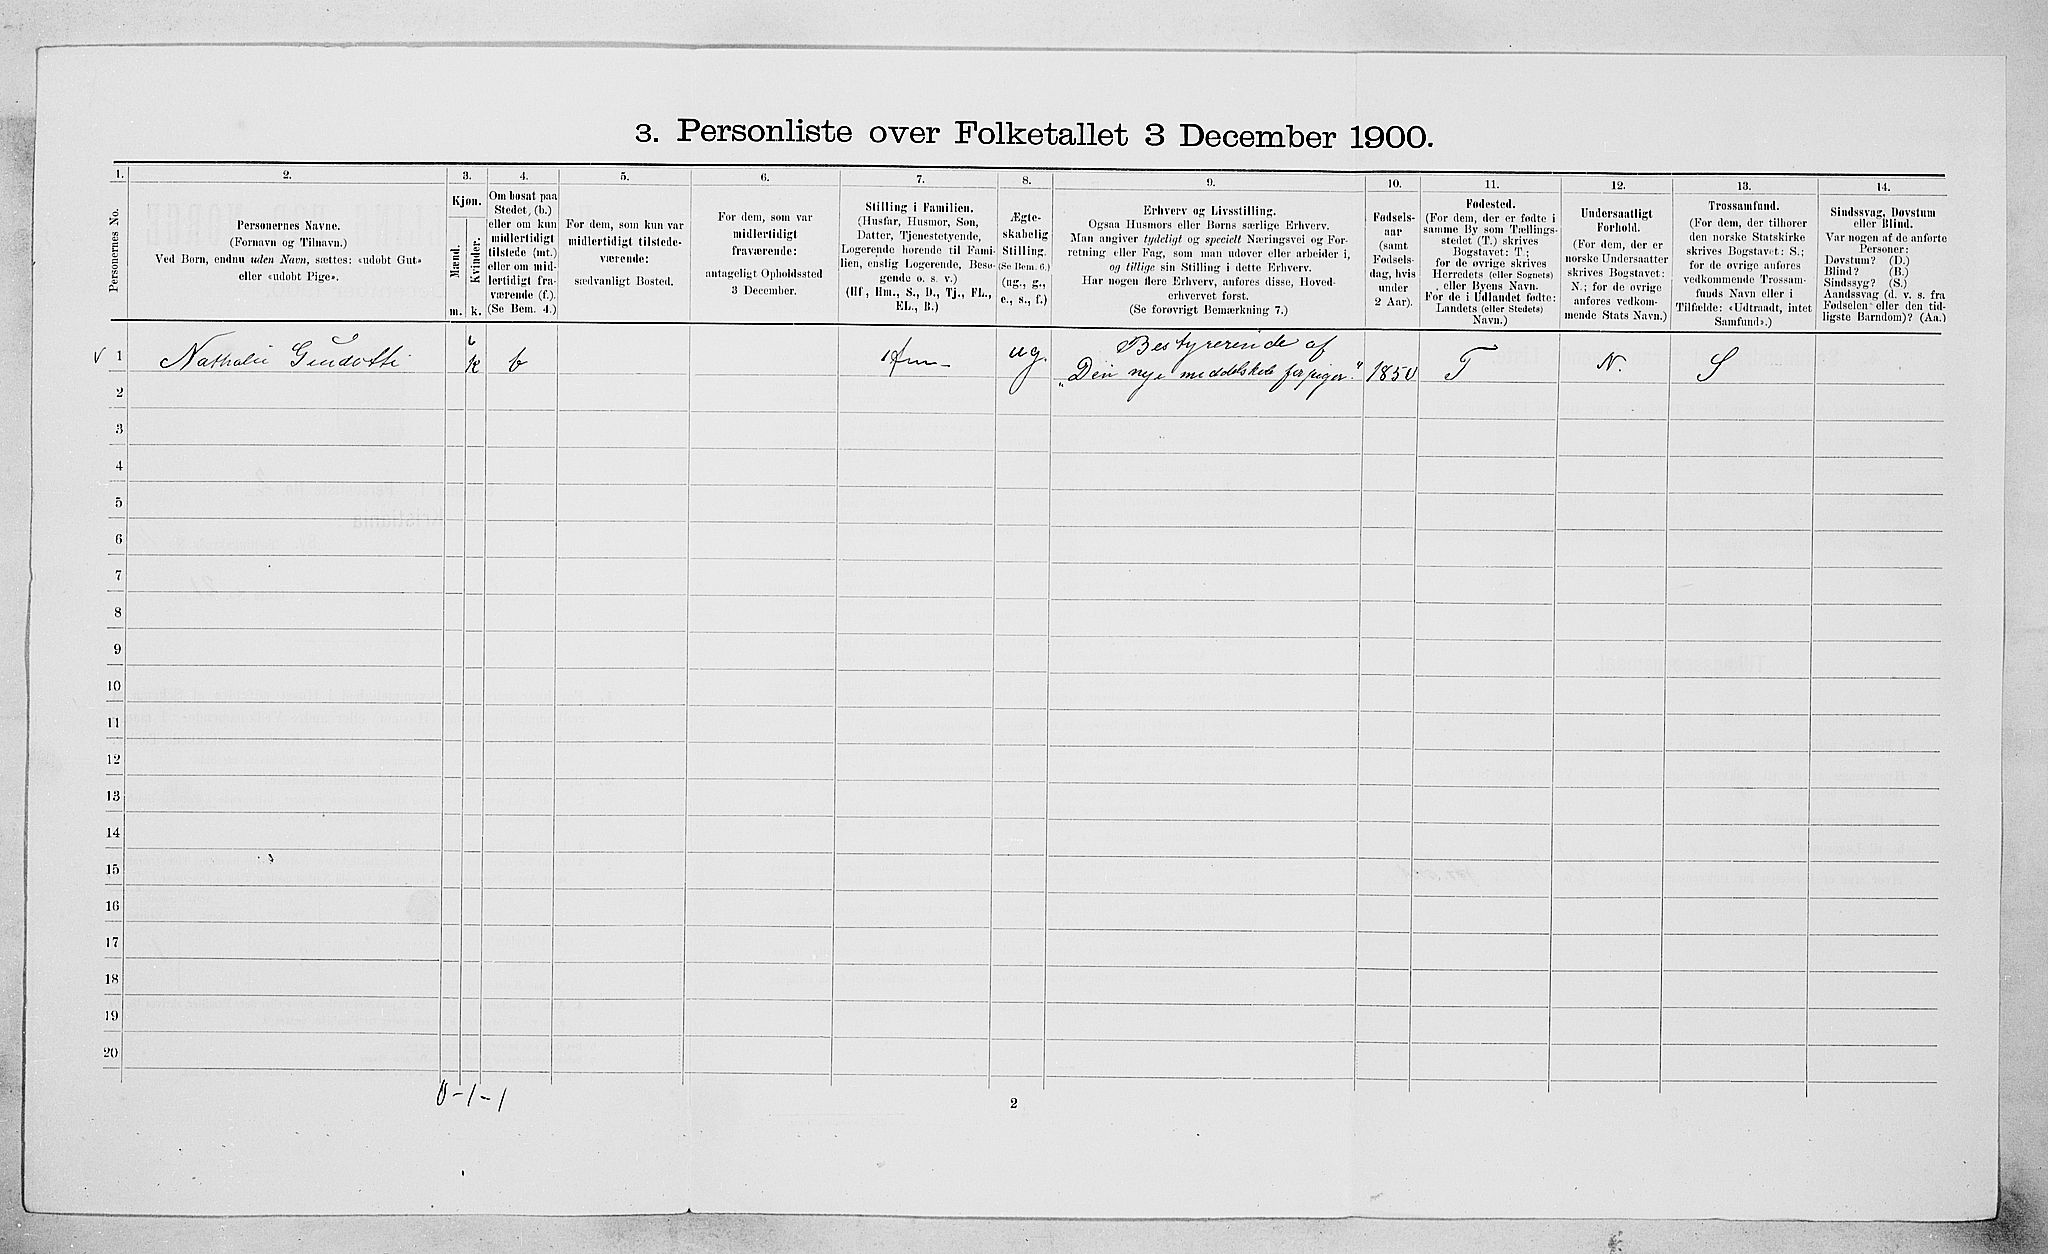 3. Personliste over Folketallet 3 December 1900.
1.
2.
3.
4.
5.
6.
7.
8.
9.
10.
11.
12.
13.
14.
Personernes No.
Personernes Navne.
(Fornavn og Tilnavn.)
Ved Børn, endnu uden Navn, sættes: «udøbt Gut»
eller «udøbt Pige».
Kjøn.
Mænd.
Kvinder.
m.
k.
Om bosat paa
Stedet, (b.)
eller om kun
midlertidigt
tilstede (mt.)
eller om mid-
lertidigt fra-
værende (f.).
(Se Bem. 4.)
For dem, som kun var
midlertidigt tilstede-
værende:
sædvanligt Bosted.
For dem, som var
midlertidigt
fraværende:
antageligt Opholdssted
3 December.
Stilling i Familien.
(Husfar, Husmor, Søn,
Datter, Tjenestetyende,
Logerende hørende til Fami-
lien, enslig Logerende, Besø-
gende o. s. v.)
(Hf., Hm., S., D., Tj., FL.,
EL., B.)
Ægte-
skabelig
Stilling.
(Se Bem. 6.)
(ug., g.,
e., s., f.)
Erhverv og Livsstilling.
Ogsaa Husmors eller Børns særlige Erhverv.
Man angiver tydeligt og specielt Næringsvei og For-
retning eller Fag, som man udøver eller arbeider i,
og tillige sin Stilling i dette Erhverv.
Har nogen flere Erhverv, anføres disse, Hoved-
erhvervet først.
(Se forøvrigt Bemærkning 7.)
Fødsels-
aar
(samt
Fødsels-
dag, hvis
under
2 Aar).
Fødested.
(For dem, der er fødte i
samme By som Tællings-
stedet (T.) skrives
Bogstavet: T.;
for de øvrige skrives
Herredets (eller Sognets)
eller Byens Navn.
For de i Udlandet fødte:
Landets (eller Stedets)
Navn.)
Undersaatligt
Forhold.
(For dem, der er
norske Undersaatter
skrives Bogstavet:
N.; for de øvrige
anføres vedkom-
mende Stats Navn.)
Trossamfund.
(For dem, der tilhører
den norske Statskirke
skrives Bogstavet: S.;
for de øvrige anføres
vedkommende Trossam-
funds Navn eller i
Tilfælde: «Udtraadt, intet
Samfund».)
Sindssvag, Døvstum
eller Blind.
Var nogen af de anførte
Personer:
Døvstum? (D.)
Blind? (B.)
Sindssyg? (S.)
Aandssvag (d. v. s. fra
Fødselen eller den tid-
ligste Barndom)? (Aa.)
1 Nathalie Guidotti k b Hm ug. Bestyrerinde af
„Den nye middelskole for piger." 1850 T N. S
2
3
4
5
6
7
8
9
10
11
12
13
14
15
16
17
18
19
20
0-1-1
2